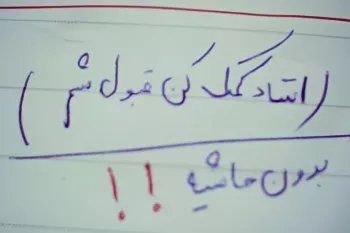 (استاد کمک کن قبول شم)
بدون حاشیه !!